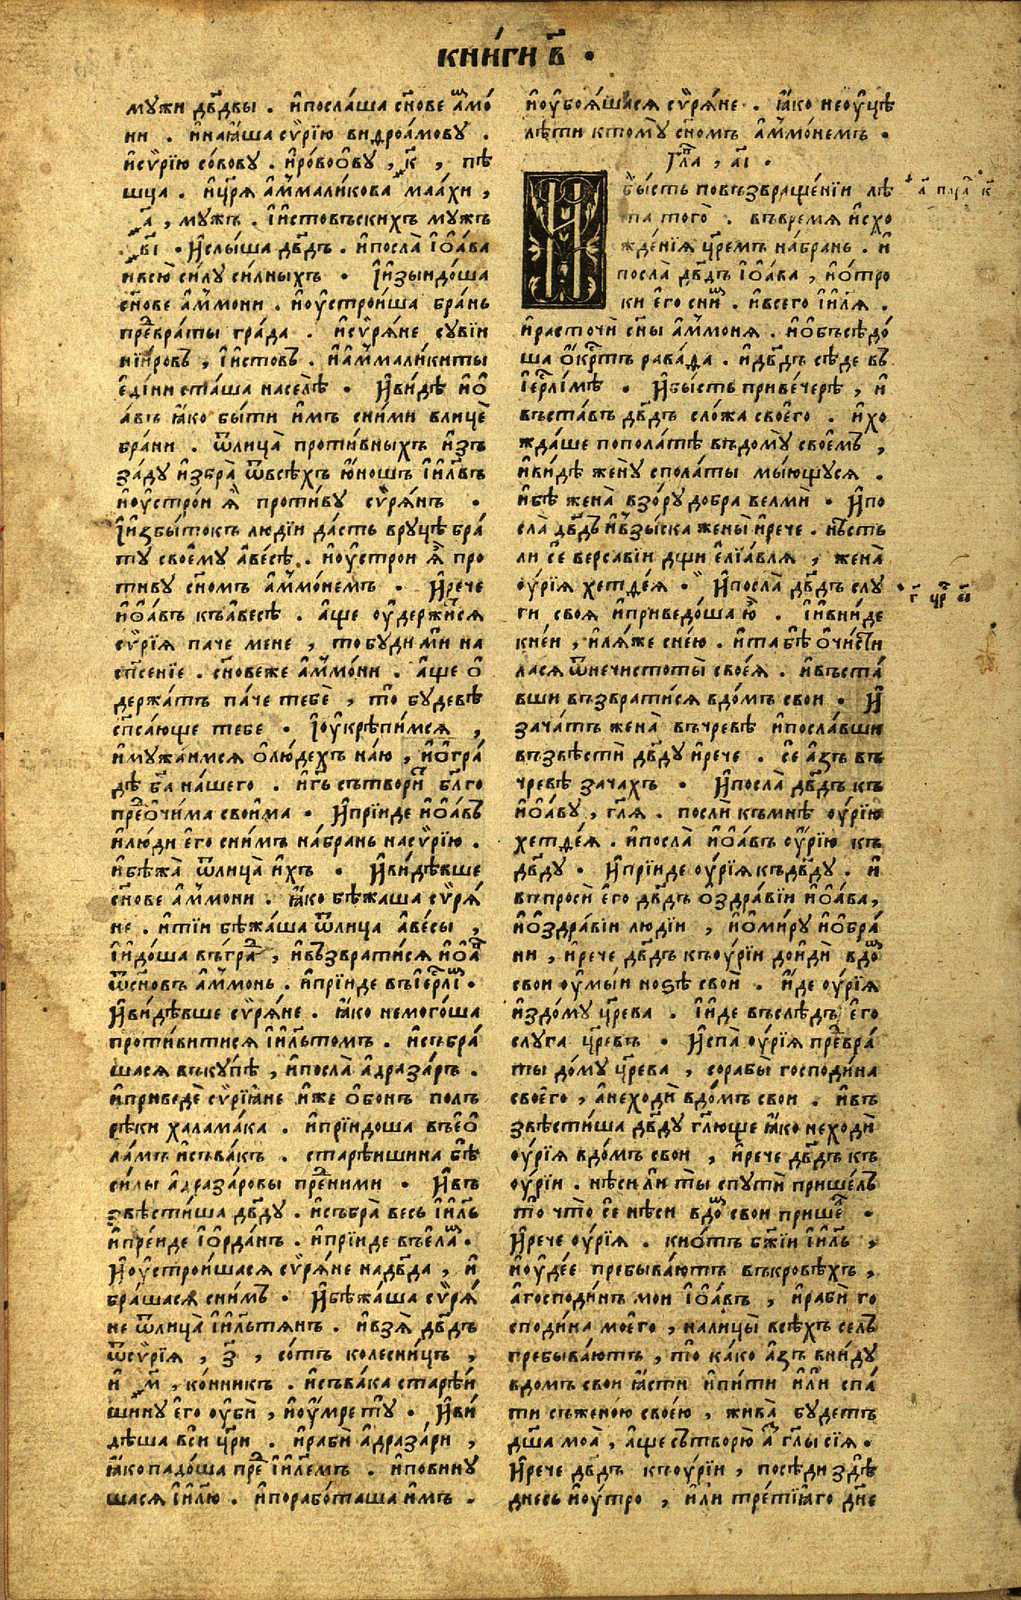 кни́ги в҃ .
мужи дв҃двы . и҆посла́ша сн҃ове а҆мо́
ни . и҆ная́ша сѵ҆рі́ю видроа́мову .
и҆сѵ҆рі́ю со́вову . и҆ро́вооо҆ву , к҃ , пѣ
шца . и҆цр҃я а҆м̾мали́кова маа́хи ,
а҃ , мужъ . і҆и҆стовъскихъ мужъ
в҃і . И҆слы́ша дв҃дъ . и҆посла̀ і҆о҆а́ва
и҆всю̀ си́лу си́лныхъ . І҆и҆зыидо́ша
сн҃ове а҆м̾мо́ни . и҆оу҆строи́ша бра́нь
пре҃дврата гра́да . и҆сѵ҆ря́не сувіи
иі҆и҆ровъ , і҆и҆стовъ . и҆а҆м̾маликиты
е҆ди́ни ста́ша населѣ̀ . И҆ви́дѣ и҆о҆
а́въ я҆́ко бы́ти и҆̀мъ сни́ми влицѐ
бра́ни . ѿлица̀ проти́вныхъ и҆зъ
за́ду и҆збра̀ ѿвсѣ́хъ ю҆́ношъ і҆и҃лвъ
и҆оу҆стро́и я҆̀ проти́ву сѵ҆ря́нъ .
І҆и҆збы́токъ люді́и да́сть вру́цѣ бра́
ту своему̀ а҆ве́сѣ . и҆оу҆строи я҆̀ про
тиву сн҃омъ а҆м̾мо́немъ . И҆рече
и҆о҆а́въ къа҆ве́сѣ . а҆́ще оу҆держи́ся
сѵ҆рі́я паче мене , то буди ми на
сп҃сеніе . сн҃овеже а҆м̾мо́ни . а҆́ще о҆
держа́тъ па́че тебѐ , то̀ бу́девѣ
сп҃са́юще тебе . І҆оу҆крѣпи́мся ,
и҆мужа́имся о҆лю́дехъ на́ю , и҆о҆гра́
дѣ бг҃а на́шего . и҆гь҃ сътвори́т бл҃го
пре҃до҆чи́ма свои́ма . И҆прі́иде и҆о҆а́въ
и҆лю́ди е҆го̀ сни́мъ на́брань насѵ҆рі́ю .
и҆бѣжа̀ ѿлица̀ и҆́хъ . И҆ви́дѣвше
сн҃ове а҆м̾мо́ни . я҆́ко бѣжа́ша сѵ҆ря́
не . и҆ті́и бѣжа́ша ѿлица̀ а҆ве́сы ,
і҆и҆до́ша въгра́д , и҆възврати́ся и҆о҆а́в
ѿсно҃въ а҆м̾мо́нь . и҆прі́иде въі҆ер҃ли́м .
И҆ви́дѣвше сѵ҆ря́не . я҆́ко немого́ша
проти́витися і҆и҃льтомъ . и҆събра́
шася въку́пѣ , и҆посла̀ а҆драза́ръ .
и҆приведѐ сѵ҆рі́яне и҆́же о҆бо́нъ полъ
рѣки халама́ка . и҆прі́идоша въе҆о҆
ла́мъ и҆съва́къ . старѣишина бѣ̀
си́лы а҆драза́ровы пре҃дни́ми . И҆въ
звѣсти́ша дв҃ду . и҆събра̀ весь і҆и҃ль
и҆пре́иде і҆о҆рда́нъ . и҆прі́иде въе҆ла́м .
И҆оу҆строи́шася сѵ҆ря́не надв҃да , и҆
бра́шася сни́мъ . И҆бѣжа́ша сѵ҆ря́
не ѿлица̀ і҆и҃льтянъ . и҆взя̀ дв҃дъ
ѿсѵ҆рі́я , з҃ , со́тъ колесни́цъ ,
и҆ м҃ , ко́нникъ . и҆съва́ка старѣи
шину е҆го̀ оу҆би̂ , и҆оу҆́мре ту̀ . И҆ви
дѣша вси цр҃и . и҆раби̂ а҆драза́ри ,
я҆́ко падо́ша пре҃д і҆и҃лемъ . и҆повину
шася і҆и҃лю . и҆порабо́таша и҆мъ .
и҆оу҆боя́шася сѵ҆ря́не . я҆́ко неоу҆цѣ
лѣ́ти ктому̀ сн҃омъ а҆м̾мо́немъ .
Гла҃ , а҃і .
И҆бы́сть повъзвраще́ніи лѣ а҃ пар҃ к҃
та того̀ . въвре́мя и҆схо
жде́нія цр҃емъ на́брань . и҆
посла̀ дв҃дъ і҆о҆а́ва , и҆о҆тро
ки е҆го̀ сни́м . и҆всего і҆и҃ля .
и҆расточи̂ сн҃ы а҆м̾мо́ня . и҆о҆бъсѣдо́
ша о҆́кр҃тъ рава́да . и҆дв҃дъ сѣ́де въ
і҆ер҃ли́мѣ . И҆бы́сть приве́черѣ , и҆
въста́въ дв҃дъ сло́жа своего . и҆хо
жда́ше пополатѣ въдому̀ своемъ ,
и҆ви́дѣ жену̀ спола́ты мы́ющуся .
и҆бѣ̀ жена̀ взо́ру добра велми̂ . И҆по
сла̀ дв҃дъ и҆взы́ска жены̀ и҆рече . нѣ́сть
ли се́ версаві́и дщи е҆ліа́вля , жена̀
оу҆рі́я хетде́я . И҆посла̀ дв҃дъ слу г҃ цр҃ е҃і
ги своя̀ и҆приведо́ша ю҆̀ . І҆и҆вни́де
кнеи , и҆ля́же снею . и҆та бѣ̀ о҆чи́сти
лася ѿнечистоты̀ своея̀ . и҆въста́
вши възврати́ся вдо́мъ свои . И҆
зача́тъ жена̀ въчре́вѣ и҆посла́вши
възвѣсти̂ дв҃ду и҆рече . се а҆́зъ въ
чре́вѣ зача́хъ . И҆посла̀ дв҃дъ къ
и҆о҆а́ву , гл҃я . посли̂ къмнѣ̀ оу҆рі́ю
хетде́я . и҆посла̀ и҆о҆а́въ оу҆рі́ю къ
дв҃ду . И҆прі́иде оу҆рі́я къдв҃ду . и҆
въпроси̂ е҆го̀ дв҃дъ о҆здра́віи и҆о҆а́ва ,
и҆о҆здра́віи люді́и , и҆о҆ми́ру и҆о҆бра́
ни , и҆рече дв҃дъ къоу҆рі́и до́иди вдо́м
свои оу҆мы́и но́зѣ свои̂ . и҆́де оу҆рі́я
и҆здо́му цр҃ева . і҆и҆де въслѣ́дъ е҆го̀
слуга̀ цр҃евъ . И҆спа̀ оу҆рі́я пре҃двра́
ты до́му цр҃ева , сорабы̀ господи́на
своего̀ , а҆неходи̂ вдо́мъ свои . и҆въ
звѣсти́ша дв҃ду гл҃юще я҆́ко неходи̂
оу҆рі́я вдо́мъ свои , и҆рече дв҃дъ къ
оу҆рі́и . нѣ́си ли ты̀ спути̂ пришелъ
то̀ что̀ се́ нѣ́си вдо́м свои прише́л .
И҆рече оу҆рі́я . киво́тъ бж҃іи і҆и҃ль ,
и҆оу҆де́е пребыва́ютъ въкро́вѣхъ ,
а҆господи́нъ мои і҆о҆а́въ , и҆раби̂ го
споди́на моего̀ , налицы̀ всѣ́хъ селъ
пребыва́ютъ , то̀ ка́ко а҆́зъ вни́ду
вдомъ свои я҆́сти и҆пи́ти и҆ли̂ спа́
ти съжено́ю своею , жива̀ бу́детъ
дш҃а моа̀ , а҆́ще сътворю̀ гл҃ы сія̀ .
И҆рече дв҃дъ къоу҆рі́и , посѣди здѣ̀
дне́сь и҆оу҆́тро , и҆ли̂ тре́тіяго дн҃е